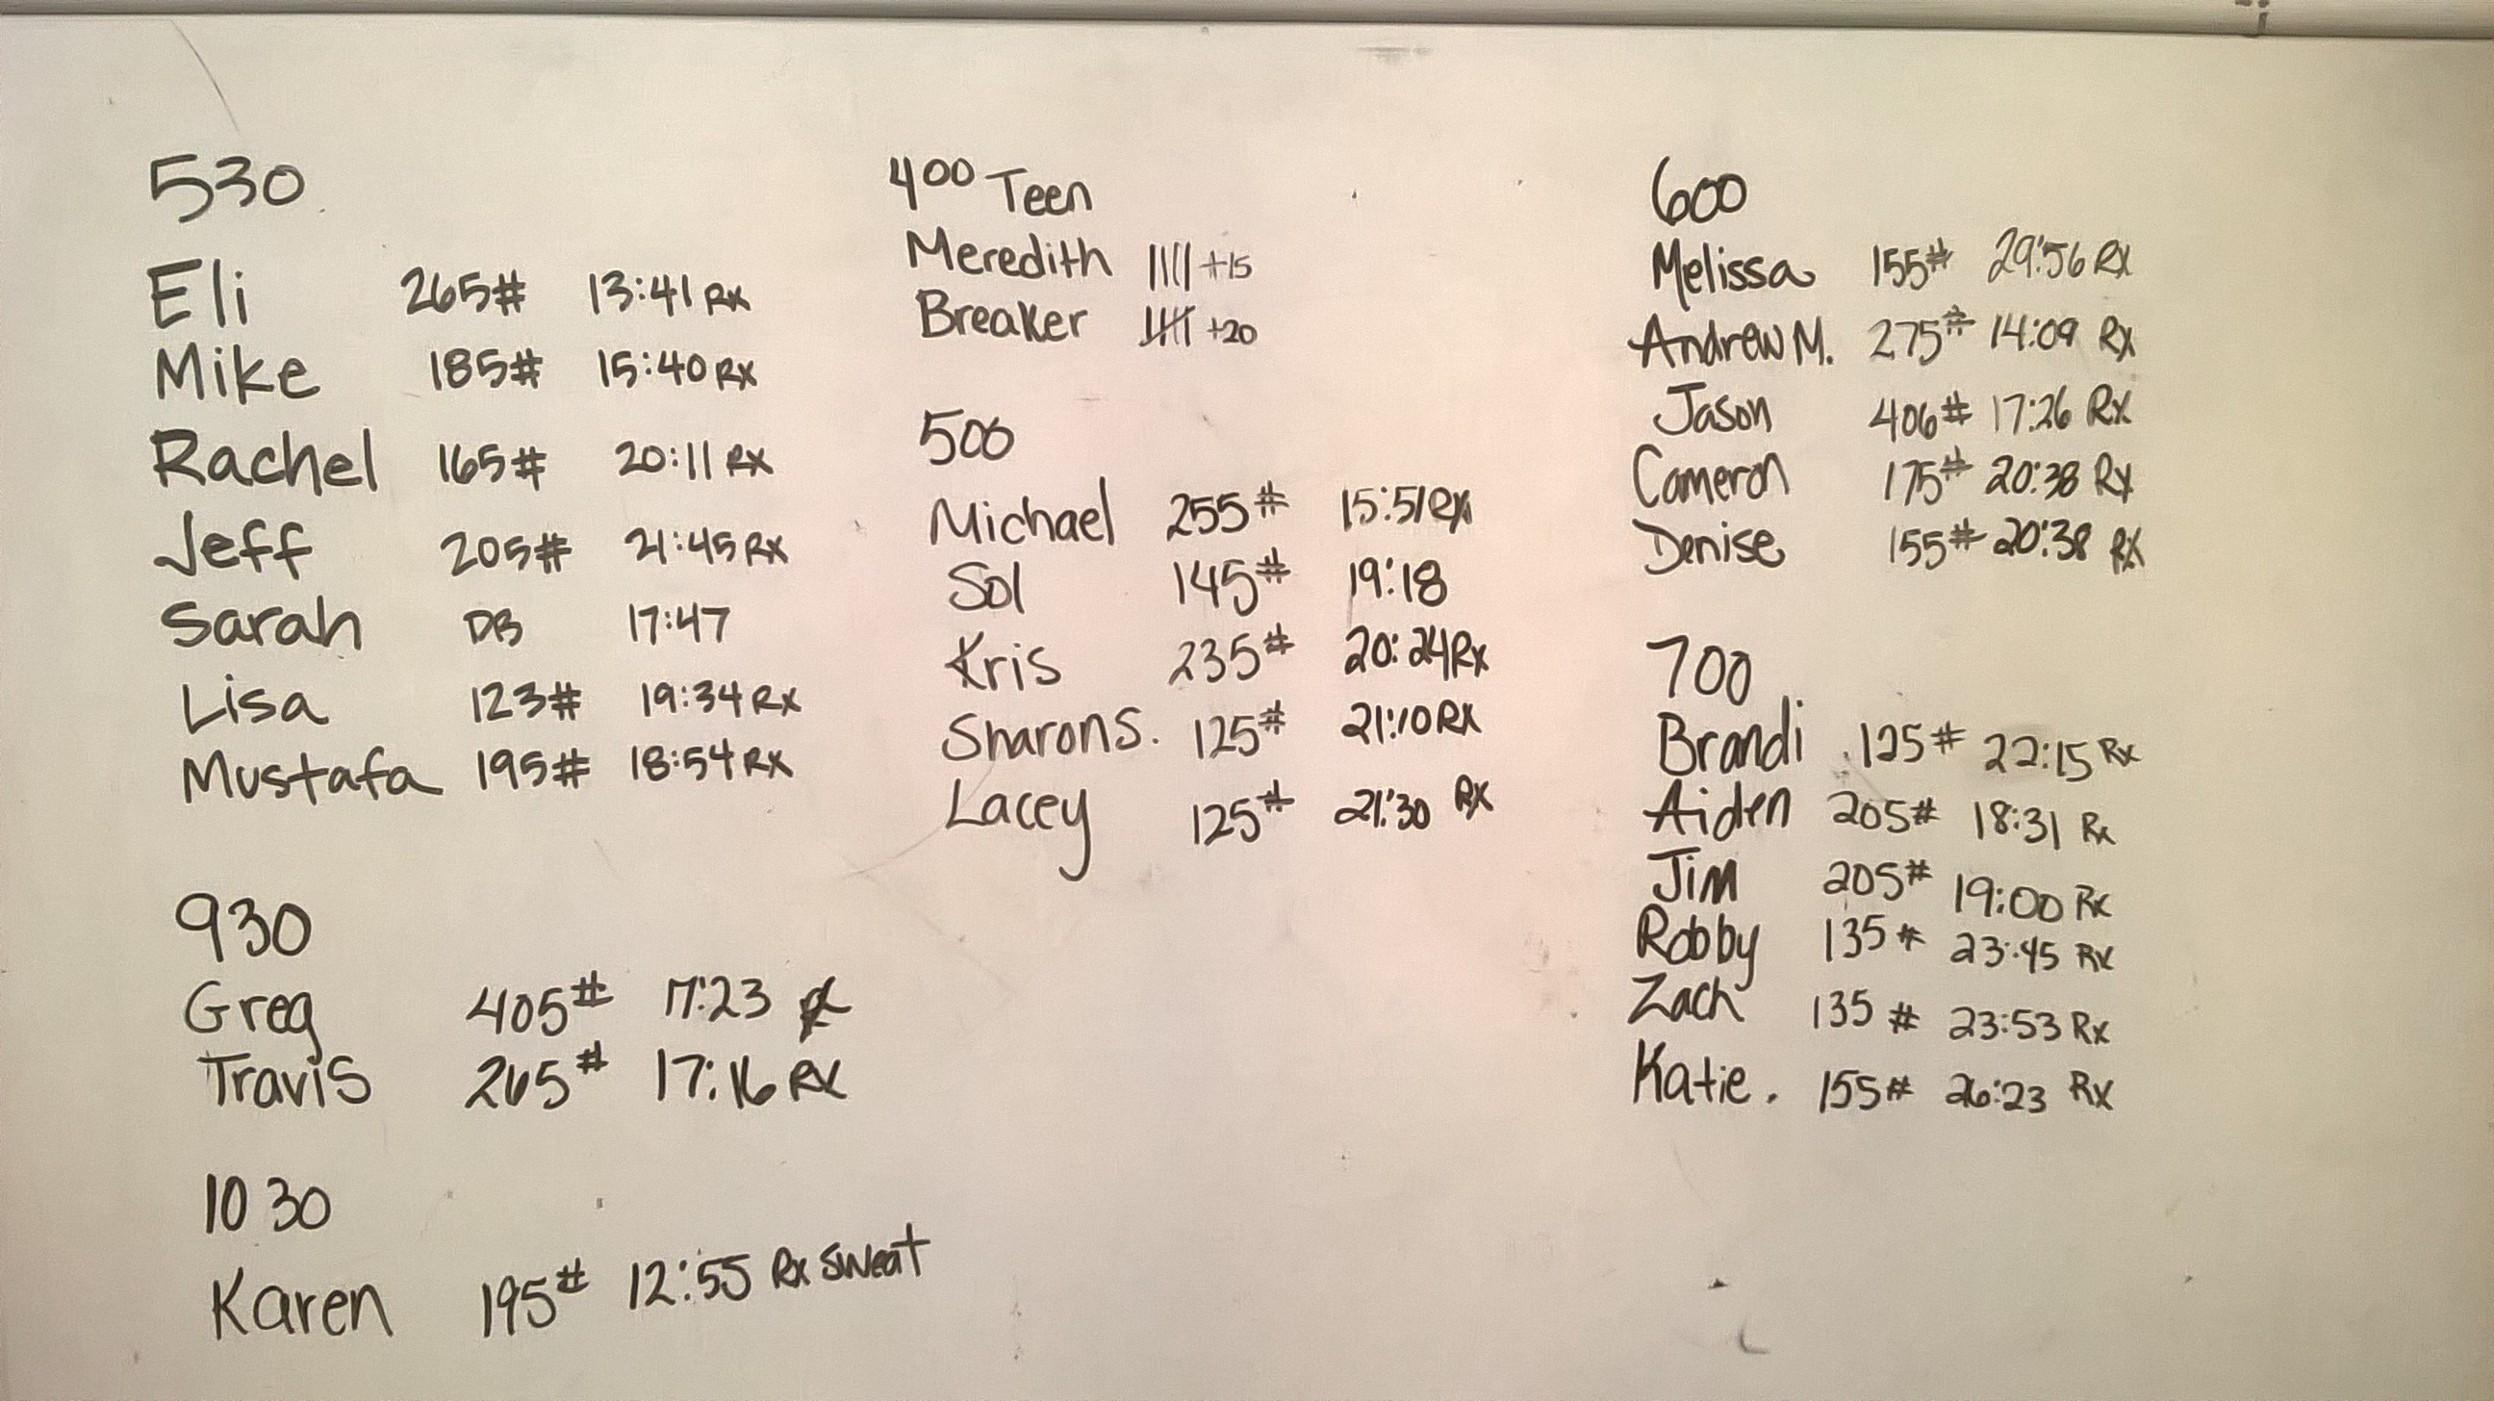 530
Eli 265# 13:41 RX
Mike 185# 15:40 RX
Rachel 165# 20:11 RX
Jeff 205# 21:45 RX
Sarah DB 17:47
Lisa 123# 19:34 RX
Mustafa 195# 18:54 RX
930
Greg 405# 17:23
Travis 265# 17:16 RX
10 30
Karen 195# 12:55 Rx sweat
400 Teen
Meredith |||| +15
Breaker 卌 +20
500
Michael 255# 15:51 Rx
Sol 145# 19:18
Kris 235# 20:24 Rx
Sharon S. 125# 21:10 RX
Lacey 125# 21:30 RX
600
Melissa 155# 29:56 RX
Andrew M. 275# 14:09 Rx
Jason 406# 17:26 Rx
Cameron 175# 20:38 Rx
Denise 155# 20:38 RX
700
Brandi 125# 22:15 Rx
Aiden 205# 18:31 Rx
Jim 205# 19:00 Rx
Robby 135# 23:45 Rx
Zach 135# 23:53 Rx
Katie. 155# 26:23 Rx